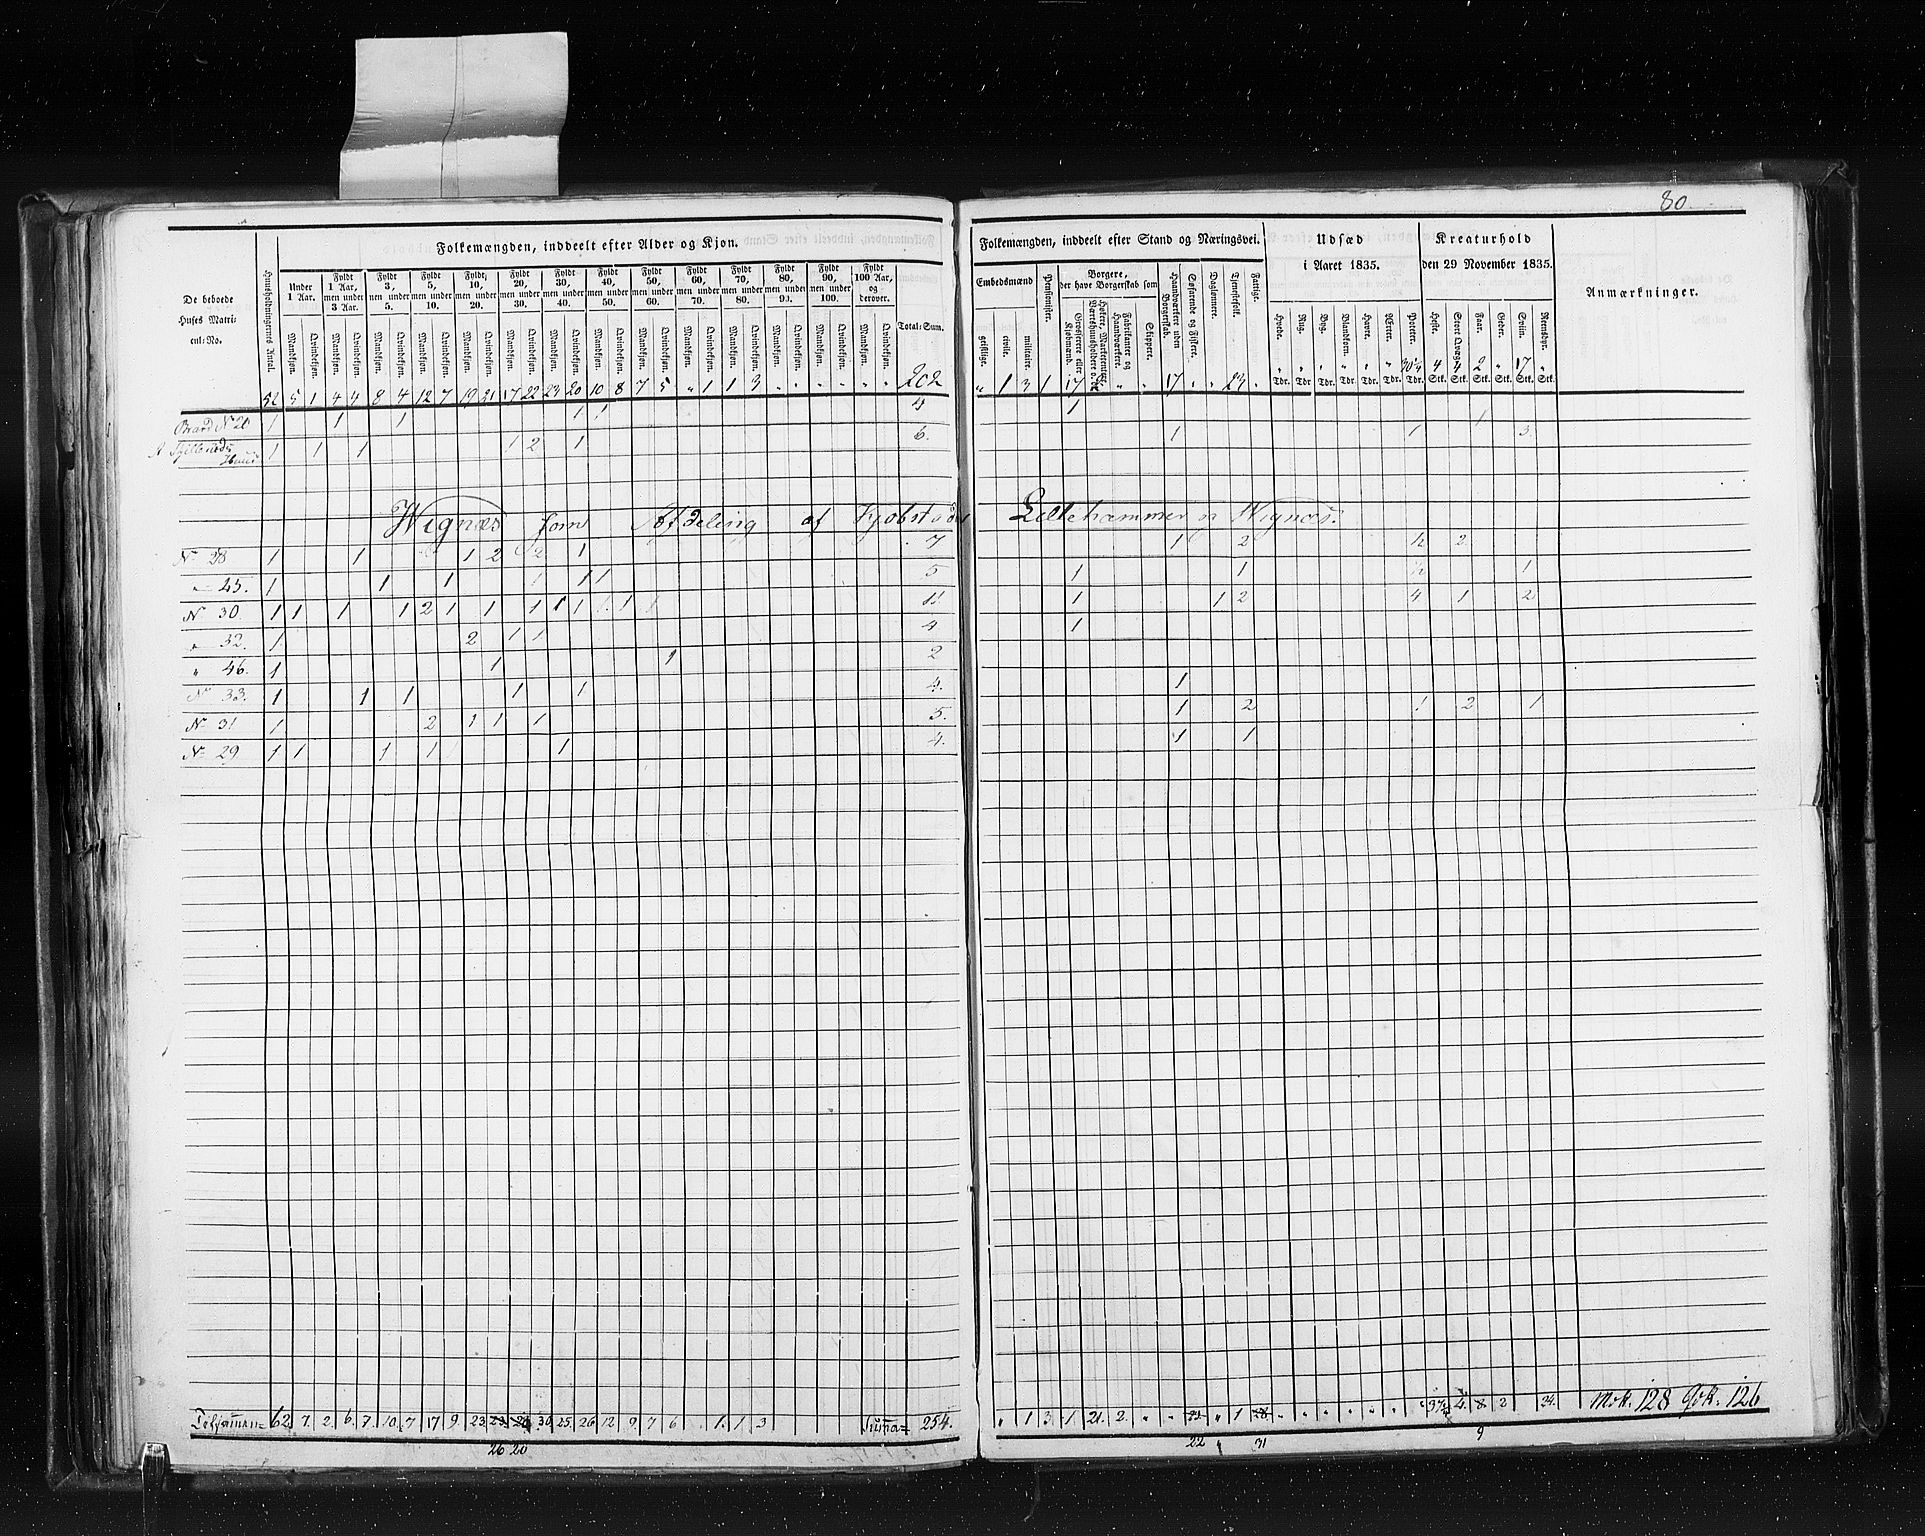 80
Folkemængden, inddeelt efter Alder og Kjøn.
De beboede Huses Matricul:No.
Huusholdningernes Antal.
Under 1 Aar.
Fyldt 1 Aar, men under 3 Aar.
Fyldt 3, men under 5.
Fyldt 5, men under 10.
Fyldt 10, men under 20.
Fyldt 20, men under 30.
Fyldt 30, men under 40.
Fyldt 40, men under 50.
Fyldt 50, men under 60.
Fyldt 60, men under 70.
Fyldt 70, men under 80.
Fyldt 80, men under 90.
Fyldt 90, men under 100.
Fyldt 100 Aar, og derover.
Mandkjøn. Qvindekjøn.
Total-Sum.
Folkemængden, inddeelt efter Stand og Næringsvei.
Embedsmænd
geistlige. civile. militaire.
Pensionister.
Borgere, der have Borgerskab som
Grosserere eller Kjøbmænd.
Fabrikanter og Haandværkere.
Skippere.
Haandværkere uden Borgerskab.
Søfarende og Fiskere.
Daglønnere.
Tjenestefolk.
Fattige.
Udsæd i Aaret 1835.
Hvede. Rug. Byg. Blandkorn. Havre. Ærter. Poteter.
Tdr. Tdr. Tdr. Tdr. Tdr. Tdr. Tdr.
Kreaturhold den 29 November 1835.
Heste. Stort Qvæg. Faar. Geder. Sviin. Rensdyr.
Stk. Stk. Stk. Stk. Stk. Stk.
Anmærkninger.
52 5 1 4 4 8 4 12 7 19 21 17 22 23 20 10 8 7 5 " 1 1 3 " " " " " " 202 " 1 3 1 17 " " 17 " " 23 " " " " " " " 30¼ 4 4 2 " 17 "
N 20 1 1 1 1 1 4 1 1
1 1 1 1 2 1 6. 1 1 3.
Wignæs som Afdeling af Kjøbstaden Lillehammer Wignæs.
N 28 1 1 1 2 2 1 7 1 2 ½ 2
" 45. 1 1 1 1 1 1 5 1 1 ½ 1
N 30. 1 1 1 1 2 1 1 1 1 1 1 1 1 11. 1 1 2 4 1 2
" 32. 1 2 1 1 4 1
" 46. 1 1 1 2
N 33. 1 1 1 1 1 4. 1
N 31 1 2 1 1 1 5. 1 2 1 2 1
N 29 1 1 1 1 1 4. 1 1
62 7. 2. 6. 7. 10. 7 17 9. 23 23 24 30 25. 26 12 9 7 6 " 1. 1. 3 Suma= 254. " 1 3 1 21. 2. " " 22 " 1 28 " " " " " " 4. 8 2 24. Mdk. 128 Qdk. 126
26 20 22 31 9